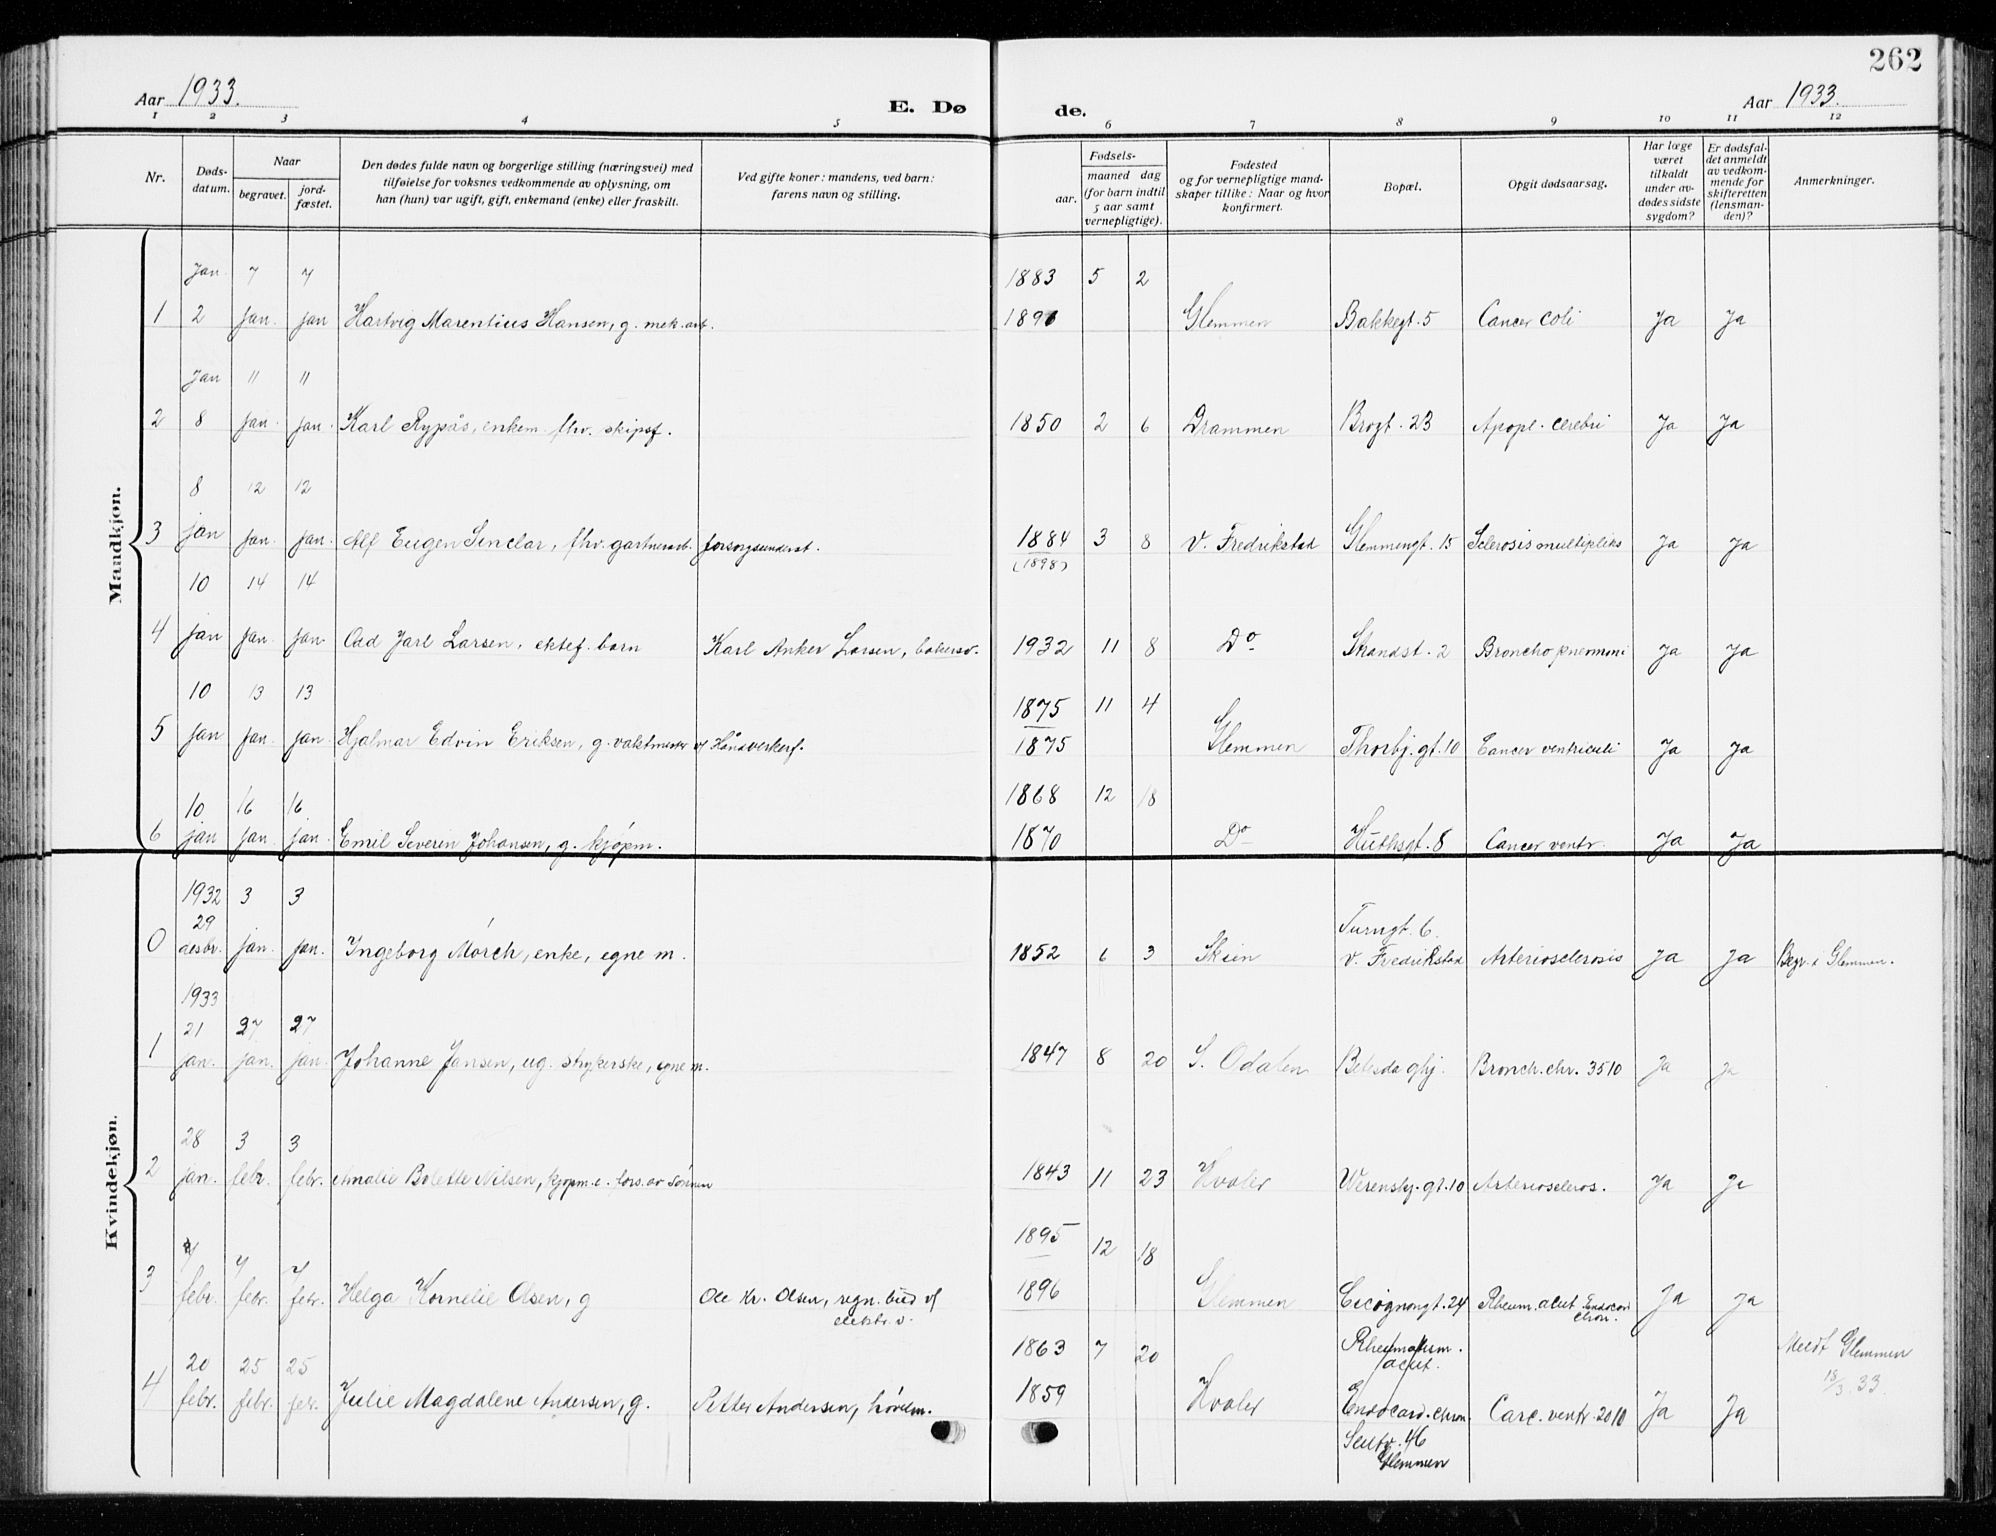 262
Aar 1933.
E. Dø
de.
Aar 1933.
1 2 3 4 5 6 7 8 9 10 11 12
Nr.
Døds-
datum.
Naar
begravet.
jord-
fæstet.
Den dødes fulde navn og borgerlige stilling (næringsvei) med
tilføielse for voksnes vedkommende av oplysning, om
han (hun) var ugift, gift, enkemand (enke) eller fraskilt.
Ved gifte koner: mandens, ved barn:
farens navn og stilling.
Fødsels-
aar.
maaned dag
(for barn indtil
5 aar samt
vernepligtige).
Fødested
og for vernepligtige mand-
skaper tillike: Naar og hvor
konfirmert.
Bopæl.
Opgit dødsaarsag.
Har læge
været
tilkaldt
under av-
dødes sidste
sygdom?
Er dødsfal-
det anmeldt
av vedkom-
mende for
skifteretten
(lensman-
den)?
Anmerkninger.
Mandkjøn.
Jan 7 7 1883 5 2
1 2 jan. jan Hartvig Marentius Hansen, g. mek. arb. 1890 Glemmen Bakkegt. 5 Cancer coli Ja Ja
Jan 11 11
2 8 jan. jan. Karl Rypås, enkem. fhv. skipsf. 1850 2 6 Drammen Brogt. 23 Apopl. cerebri Ja Ja
8 12 12
3 jan jan. jan. Alf Eugen Sinclar, fhv. gartnerarb. forsorgsunderst. 1884 3 8 V. Fredrikstad Glemmengt. 15 Sclerosis multipliks Ja Ja
(1898)
10 14 14
4 jan jan. jan. Odd Jarl Larsen, ektef. barn Karl Anker Larsen, bakersv. 1932 11 8 Do Skandst. 2 Bronchopneumoni Ja Ja
10 13 13 1875 11 4
5 jan jan. jan. Hjalmar Edvin Eriksen, g. vaktmester v/ Håndverkerf. 1875 Glemmen Thorbj. gt. 10 Cancer ventriculi Ja Ja
10 16 16 1868 12 18
6 jan jan. jan. Emil Severin Johansen, g. kjøpm. 1870 Do Huthsgt. 8 Cancer ventr. Ja Ja
Kvindekjøn.
1932 3 3
29 Turngt. 6.
0 desbr. jan. jan. Ingeborg Mørch, enke, egne m. 1852 6 3 Skien V. Fredrikstad Arteriosclerosis Ja Ja Begr. i Glemmen.
1933
21 27 27
1 jan. jan. jan. Johanne Jansen, ug. strykerske, egne m. 1847 8 20 S. Odalen Betesda ghj. Bronch. chr. 3510 Ja Ja
28 3 3
2 jan. febr. febr. Amalie Bolette Nilsen, kjøpm.e. fors. av sønnen 1843 11 23 Hvaler Werenskj. gt. 10 Arterioscleros. Ja Ja
7 7 1895 12 18
3 febr. febr. febr. Helga Kornelie Olsen, g Ole Kr. Olsen, regn. bud v/ 1896 Glemmen Cicignongt. 24 Rheum. acut Endocar Ja Ja
elektr. v. chron.
20 25 25 1863 7 20 Rheumatism. acut. Meldt Glemmen
18/3. 33.
4 febr. febr. febr. Julie Magdalene Andersen, g. Petter Andersen, høvlm. 1859 Hvaler Endocard. chron. Carc. ventr. 2010 Ja Ja
46
Glemmen